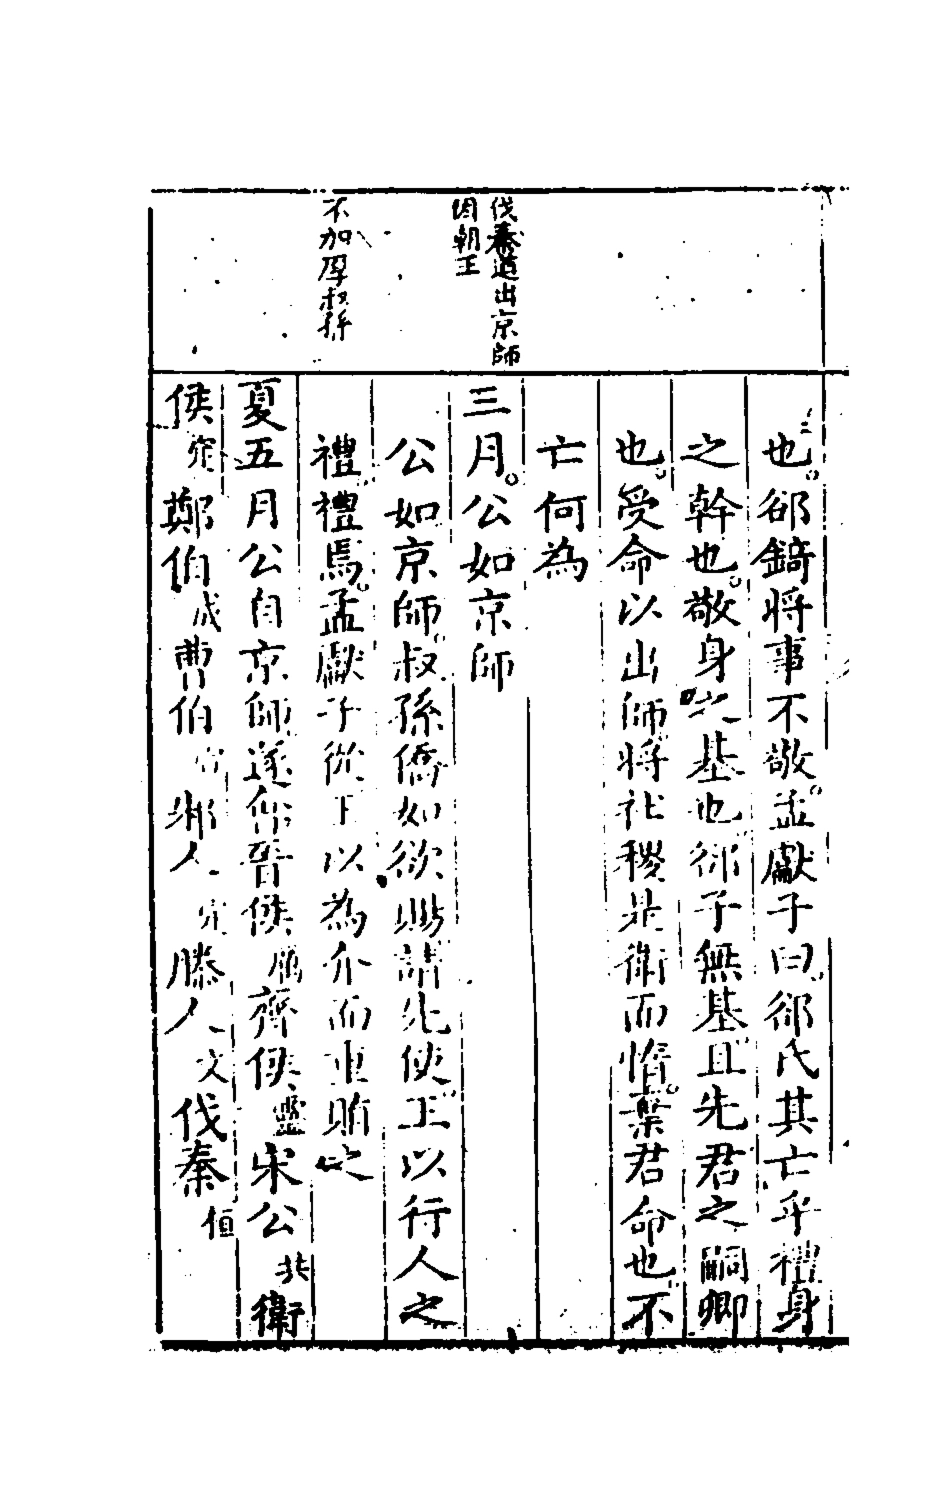 伐秦道出京師
因朝王
不加厚叔孫
也。郤錡將事不敬。孟獻子曰。郤氏其亡乎禮身
之幹也。敬身之基也郤子無基且先君之嗣卿
也。受命以出師將社稷是衛而惰。棄君命也不
亡何為
三月。公如京師
公如京師叔孫僑如欲賜請先使王以行人之
禮禮焉。孟獻子從王以為介而重賄之
夏五月公自京師遂晉侯厲齊侯靈宋公共衛
侯定鄭伯成曹伯宣邾人定滕人文伐秦桓